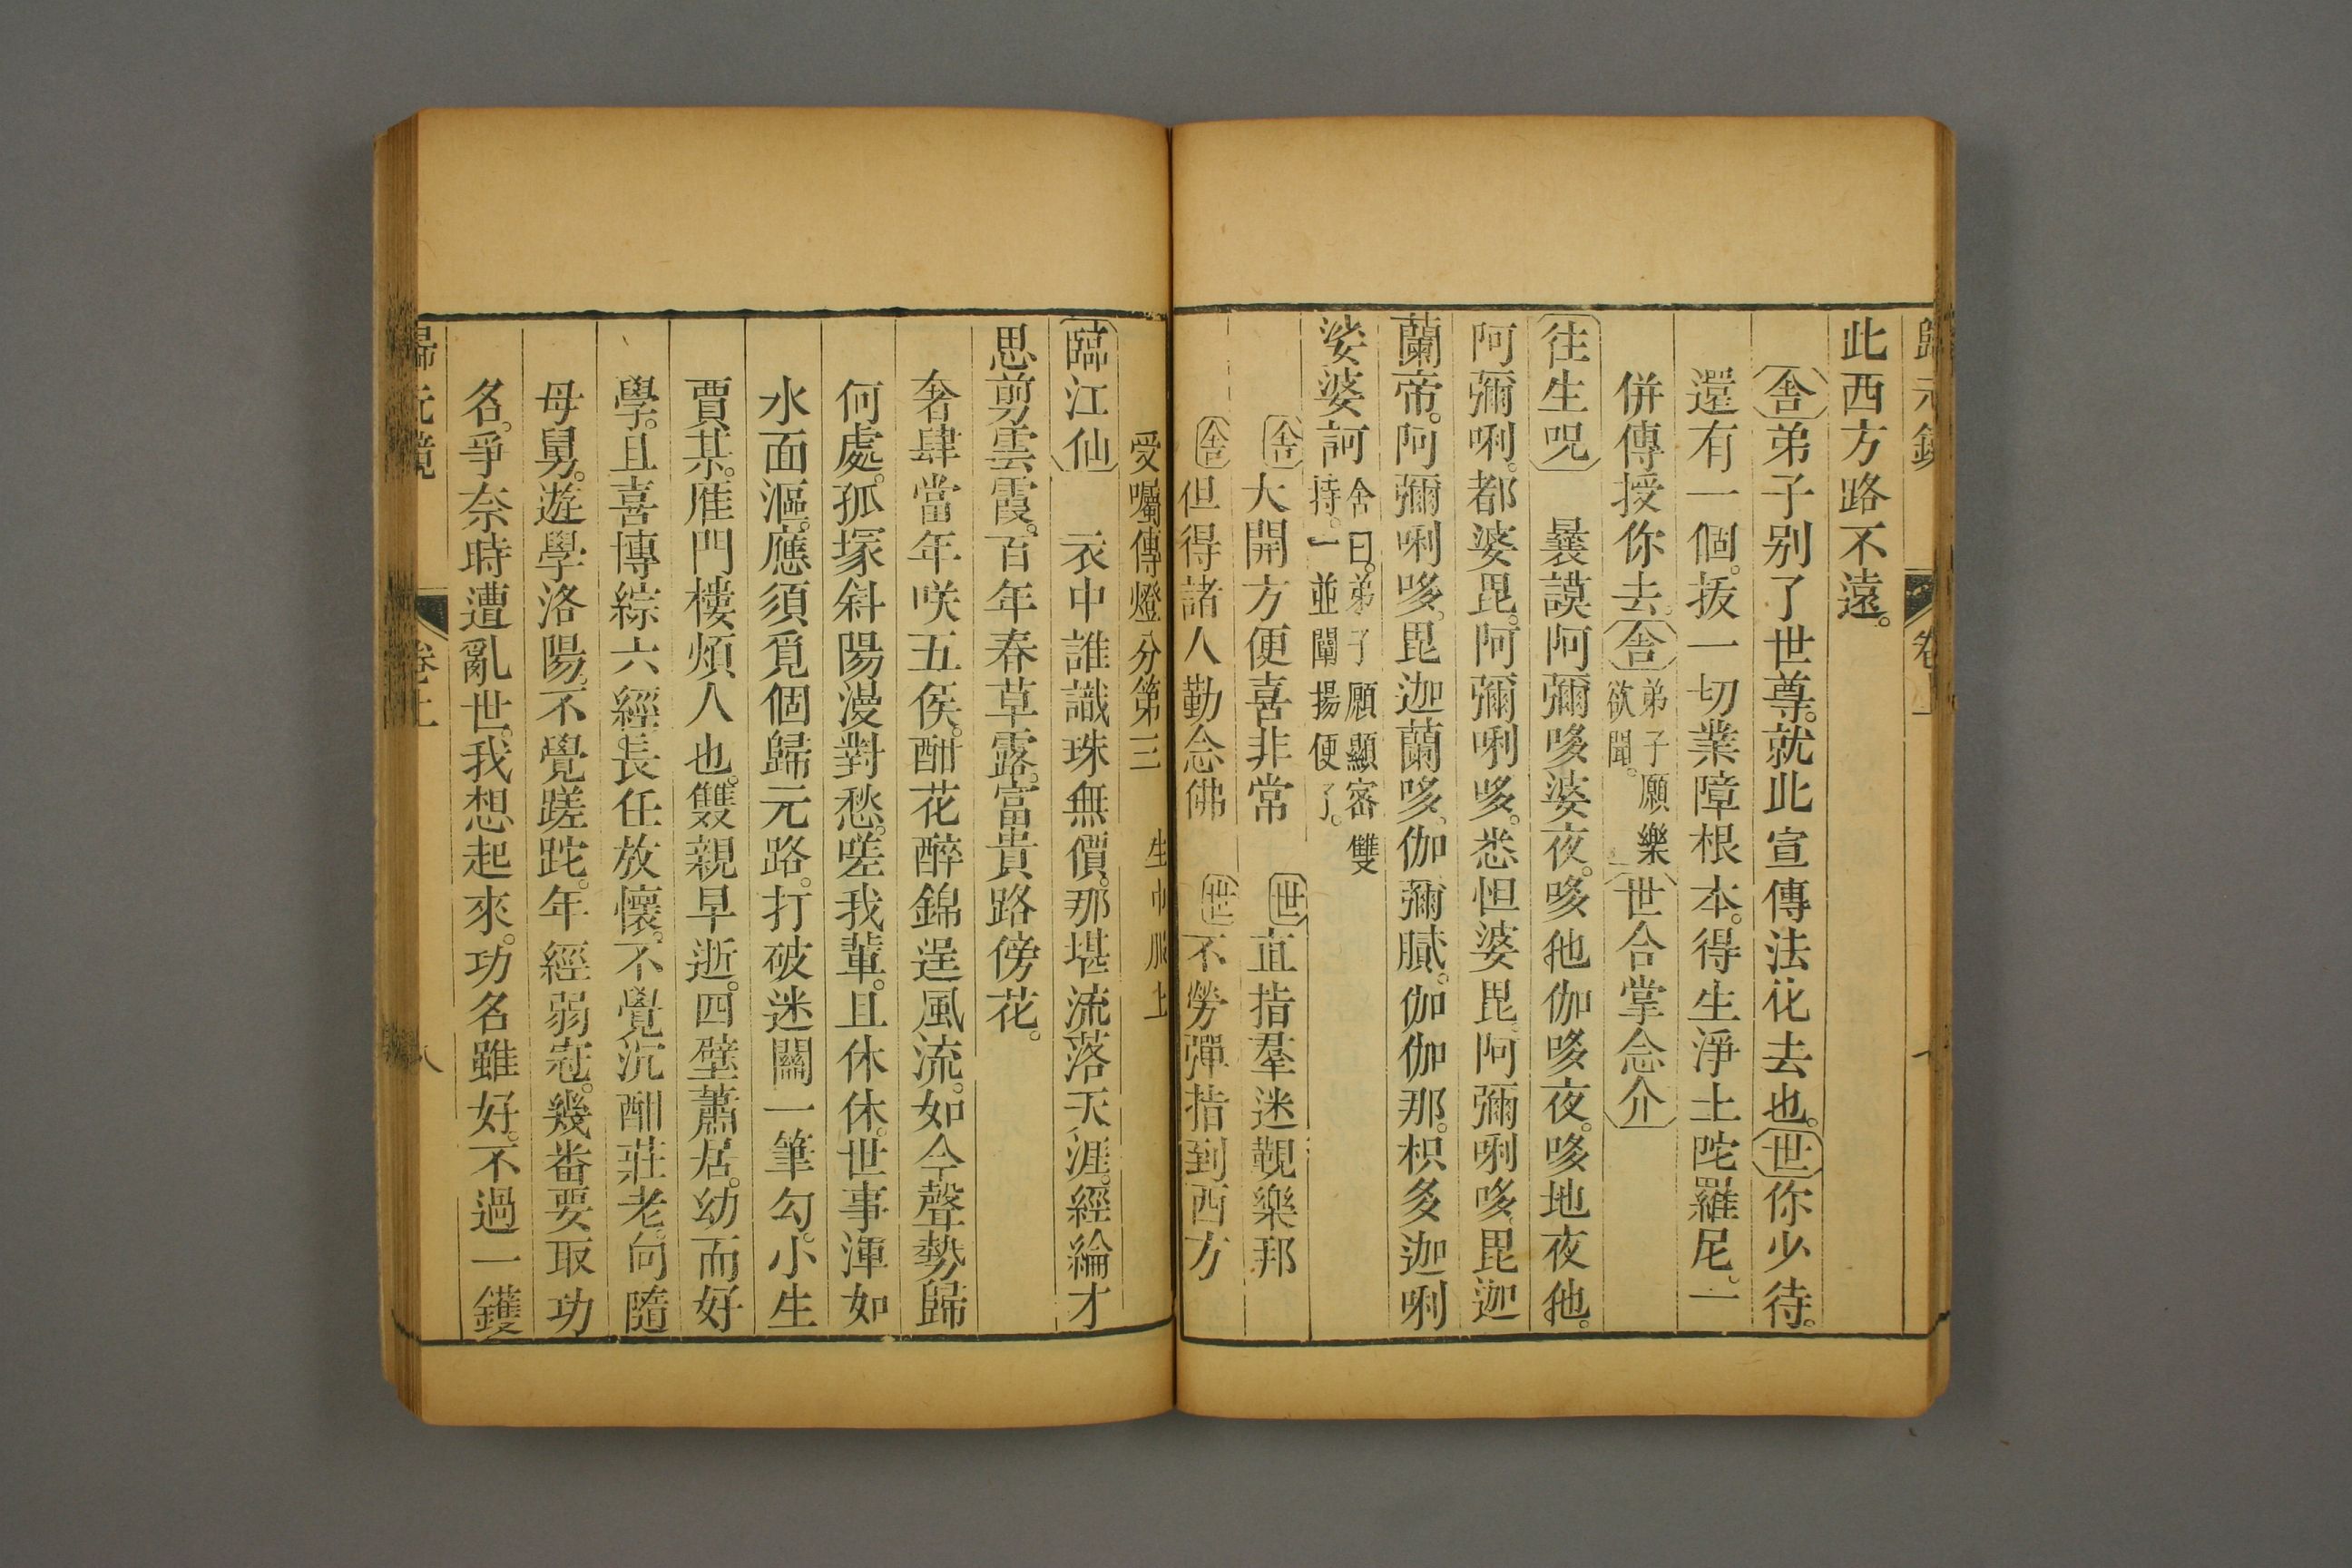 歸元鏡 卷上
此西方路不遠。
舎弟子别了世尊。就此宣傳法化去也。世你少待。
還有一個。拔一切業障根本。得生淨土陀羅尼。一
併傳授你去。舎弟子願樂欲聞。世合掌念介
往生咒 曩謨阿彌哆婆夜。哆他伽哆夜。哆地夜他。
阿彌唎。都婆毘。阿彌唎哆。悉怛婆毘。阿彌唎哆。毘迦
蘭帝。阿彌唎哆。毘迦蘭哆。伽彌膩。伽伽那。枳多迦唎
娑婆訶 舎曰。弟子願顯密雙持。一並闡揚便了。
舎大開方便喜非常 世直指羣迷覲樂邦
舎但得諸人勤念佛 世不勞彈指到西方
受囑傳燈分第三 生巾服上
臨江仙 衣中誰識珠無價。那堪流落天涯。經綸才
思剪雲霞。百年春草露。富貴路傍花。
奢肆當年咲五侯。酣花醉錦逞風流。如今聲勢歸
何處。孤塚斜陽漫對愁。嗟我輩。且休休。世事渾如
水面漚。應須覓個歸元路。打破迷關一筆勾。小生
賈某。雁門樓煩人也。雙親早逝。四壁蕭居。幼而好
學。且喜博綜六經。長任放懷。不覺沉酣莊老。向隨
母舅。遊學洛陽。不覺蹉跎。年經弱冠。幾畨要取功
名。爭奈時遭亂世。我想起來。功名雖好。不過一鑊
歸元鏡 卷上 八